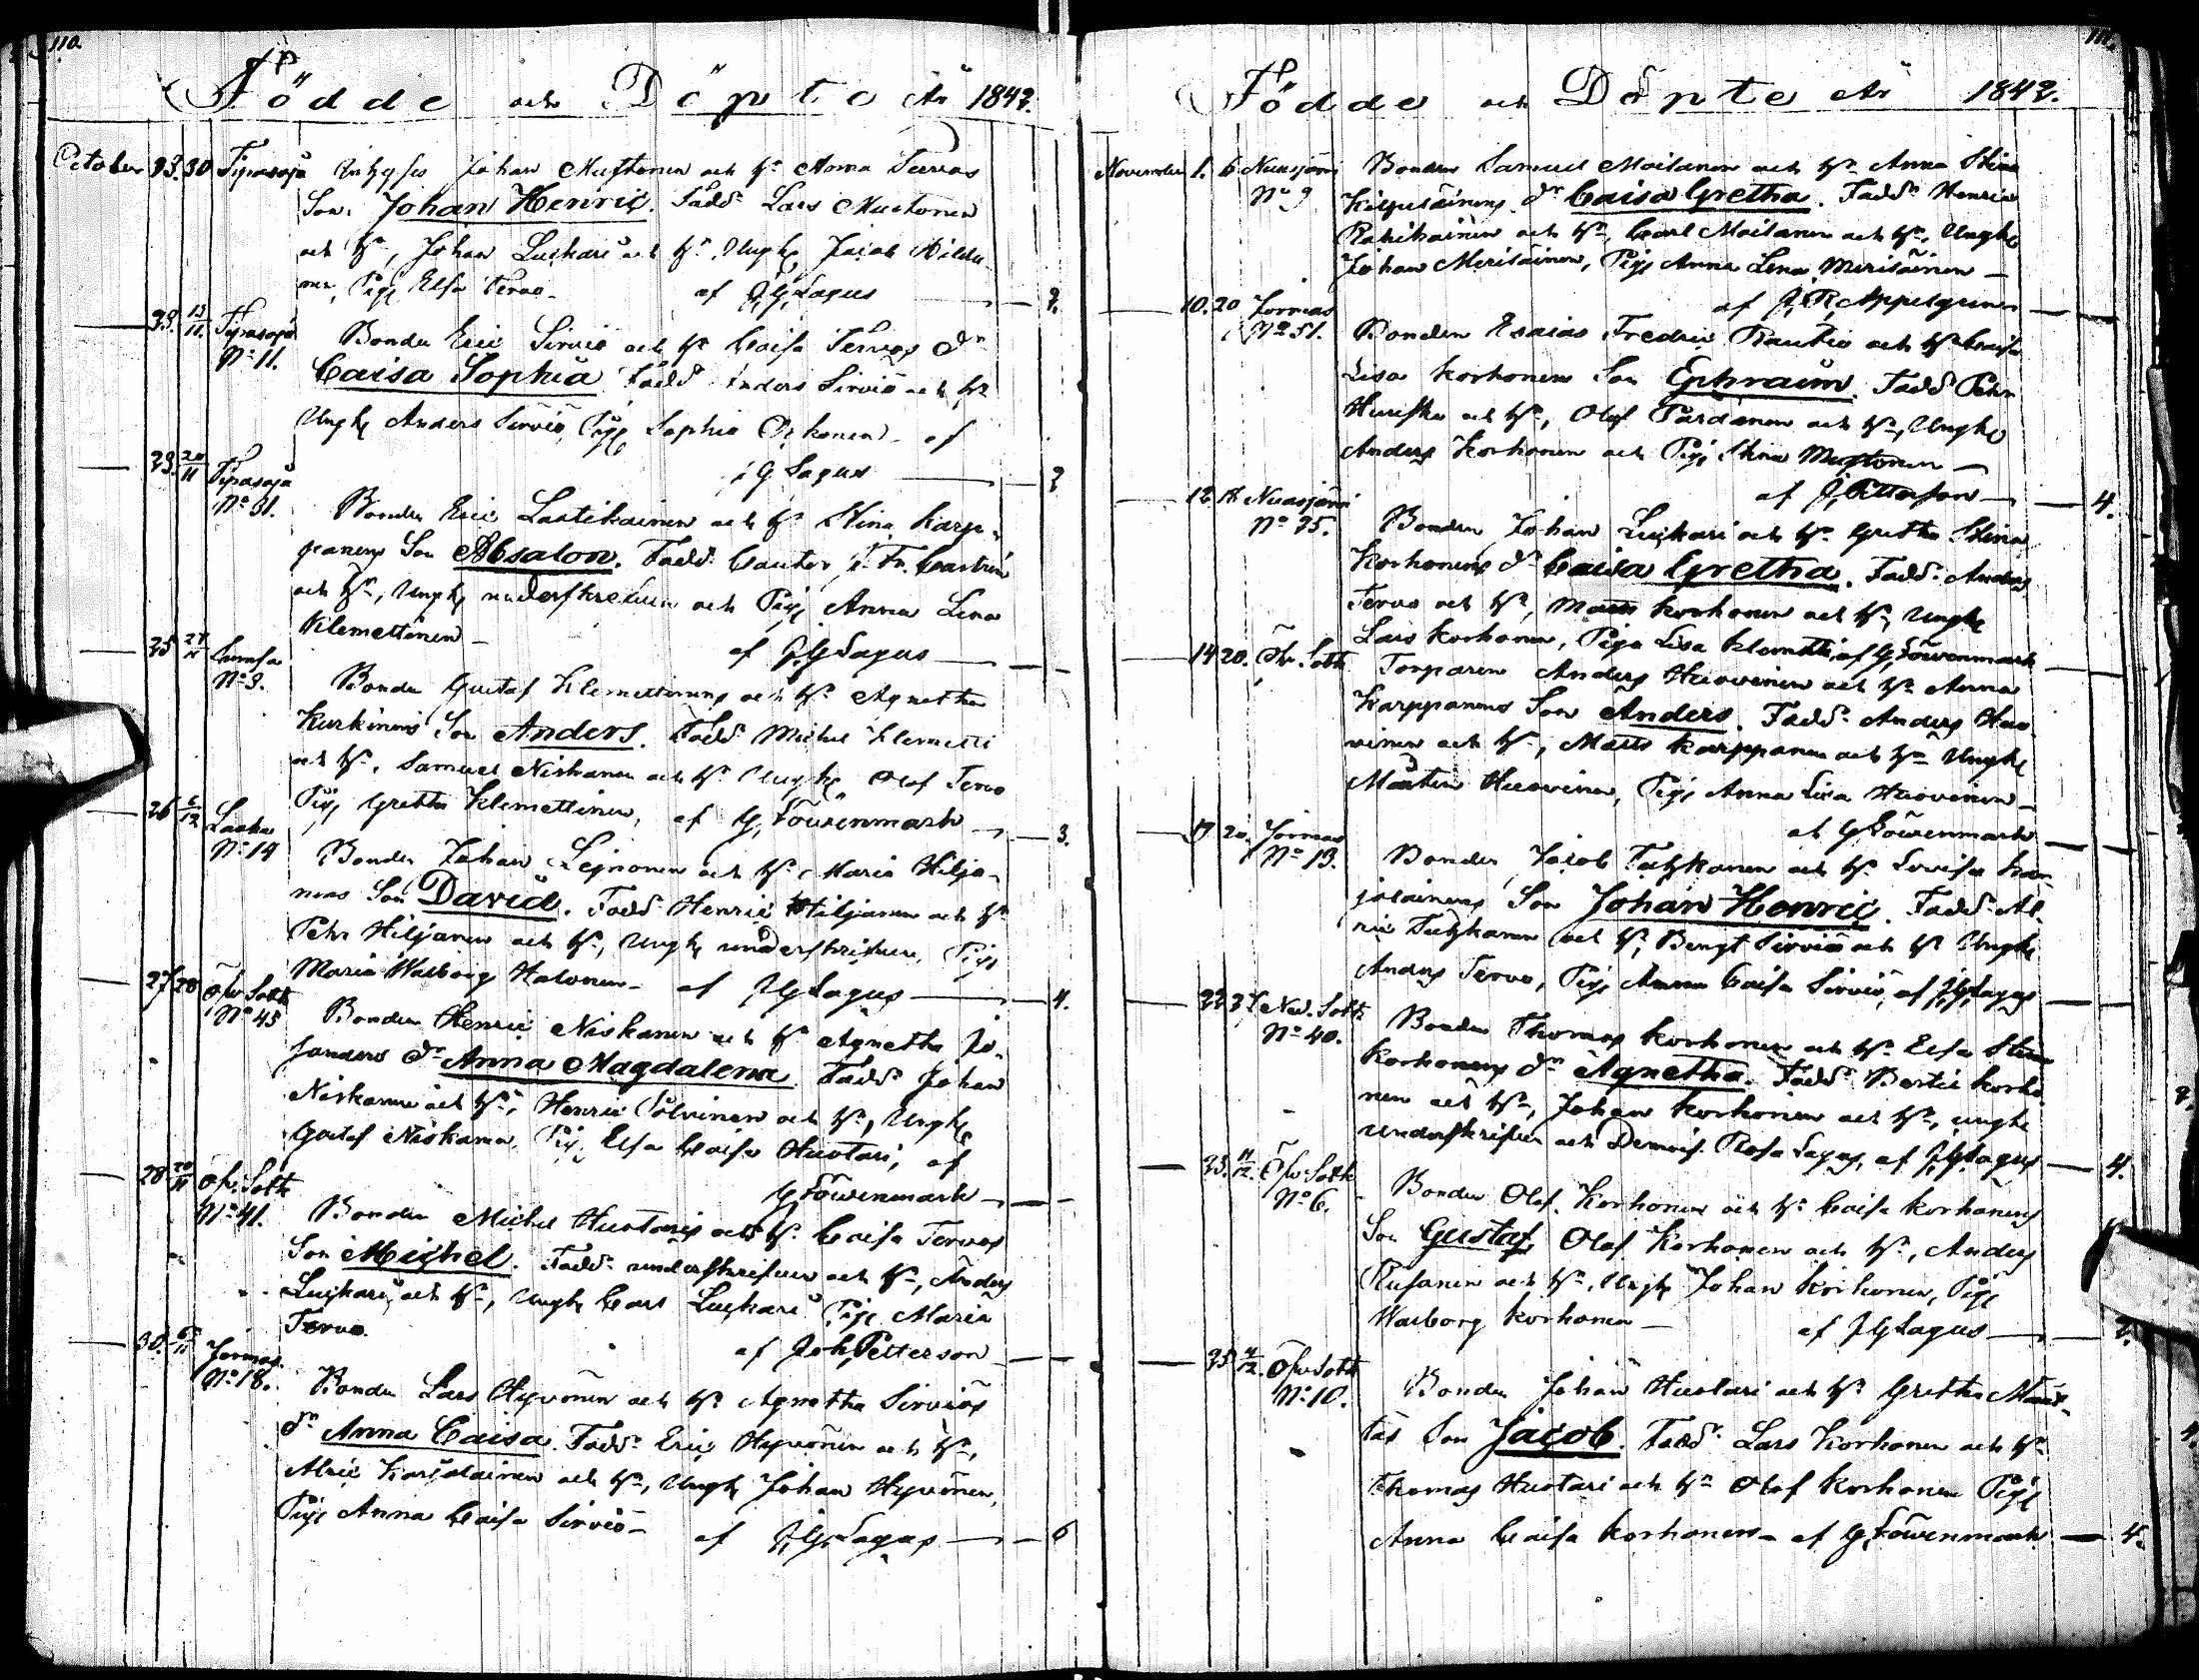 110.
Födde och Döpte År 1842.
October 23. 30 Tipasoja Inhyses Johan Mustonen och h. Anna Tervos
Son Johan Henric. Fadd. Lars Mustonen
och h., Johan Luckari och h. Ungk. Jacob Hildu-
nen, Pig. Elsa Tervo. af J,G,Lagus — 2.
23. 13/11. Tipasoja Bonden Eric Sirviö och h. Caisa Tervos dr
No 11. Caisa Sophia. Fadd. Anders Sirviö och h.
Ungk. Anders Sirviö, Pig. Sophia
af J G Lagus
23. 20/11 Tipasoja
No 31. Bonden Eric Laatikainen och h. Stina Karp-
panens Son Absalon. Fadd. Cantor Castrén
och h., Ungk. underskrefven och Pig. Anna Lena
Klemettinen — af J,G,Lagus —
25 27/11
No 3. Bonden Gustaf Klemettinens och h. Agnetha
Kurkinens Son Anders. Fadd. Michel Klemetti
och h., Samuel Niskanen och h. Ungk. Olof Tervo
Pig. Gretha Klemettinen, af G, Löwenmark — 3.
26 6/12
No 14 Bonden Johan Leinonen och h. Maria Hilja-
nens Son David. Fadd. Henric Hiljanen och h.
Petr Hiljanen och h., Ungk. underskrifven, Pig.
Maria Walborg Halonen — af J,G,Lagus — 4.
27 28 Öfv. Sotk.
No 45 Bonden Henric Niskanen och h. Agnetha Jo-
sanders dr Anna Magdalena. Fadd. Johan
Niskanen och h., Henric Polvinen och h., Ungk.
Gustaf Niskanen, Pig. Elsa Caisa Huotari, af
G,Löwenmark —
28 20/11 Öfv. Sotk.
No 41. Bonden Michel Huotaris och h. Caisa Tervos
Son Michel. Fadd. underskrifven och h., Anders
Luckari och h., Ungk. Carl Luckari Pig. Maria
Tervo. af Joh, Petterson —
30. 6/11 Jormas
No 18. Bonden Lars Hyvönen och h. Agnetha Sirviös
dr Anna Caisa. Fadd. Eric Hyvönen och h.,
Alric Karjalainen och h., Ungk. Johan Hyvönen,
Pig. Anna Caisa Sirviö — af J,G,Lagus — 6
Födde och Döpte År 1842.
November 1. 6 Nuasjärvi Bonden Samuel Moilanen och h. Anna Stina
No 9 dr Caisa Gretha. Fadd. Henric
och h., Carl Moilanen och h., Ungk.
Johan Meriläinen, Pig. Anna Lena Meriläinen —
af J,R,Appelgrenen
10. 20 Jormas
No 51. Bonden Esaias Fredric Rautio och h. Caisa
Lisa Korhonens Son Ephraim. Fadd. Petr
och h., Olof Pardanen och h., Ungk.
Anders Korhonen och Pig. Stina Mustonen —
af J,Petterson — 4.
12 Nuasjärvi
No 35. Bonden Johan Luckari och h. Gretha Stina
Korhonens dr Caisa Gretha. Fadd. Anders
Tervo och h., Matts Korhonen och h., Ungk.
Lars Korhonen, Piga Lisa Klemetti, af G,Löwenmark
14 20. Öfv. Sotk. Torparen Anders Huovinen och h. Anna
Karppanens Son Anders. Fadd. Anders Huo-
vinen och h., Matts Karppanen och h. Ungk.
Mårten Huovinen, Pig. Anna Lisa Huovinen —
af G,Löwenmark
17 20. Jormas
No 13. Bonden Jacob Tuhkanen och h. Lovisa Kar-
jalainens Son Johan Henric. Fadd. Al-
ric Tuhkanen och h., Bengt Sirviö och h. Ungk.
Anders Tervo, Pig. Anna Caisa Sirviö, af J,G,Lagus
22 27 Ned. Sotk.
No 40. Bonden Thomas Korhonen och h. Elsa Stina
Korhonens dr Agnetha. Fadd. Bertil Korho-
nen och h., Johan Korhonen och h., ungk.
underskrifven och Demois. Rosa Lagus, af J,G,Lagus — 4.
23. 4/12. Öfv. Sotk.
No 6. Bonden Olof Korhonen och h. Caisa Korhonens
Son Gustaf, Olof Korhonen och h., Anders
Rusanen och h., Ungk. Johan Korhonen, Pig.
Walborg Korhonen — af J,G,Lagus — 2.
25 4/12. Öfv. Sotk.
No 10. Bonden Johan Huotari och h. Gretha
Son Jacob. Fadd. Lars Korhonen och h.
Thomas Huotari och h. Olof Korhonen Pig.
Anna Caisa Korhonen — af G,Löwenmark — 4.